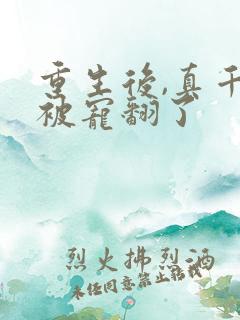 重生後,真千
被寵翻了
烈火拂烈酒
未经同意禁止转载